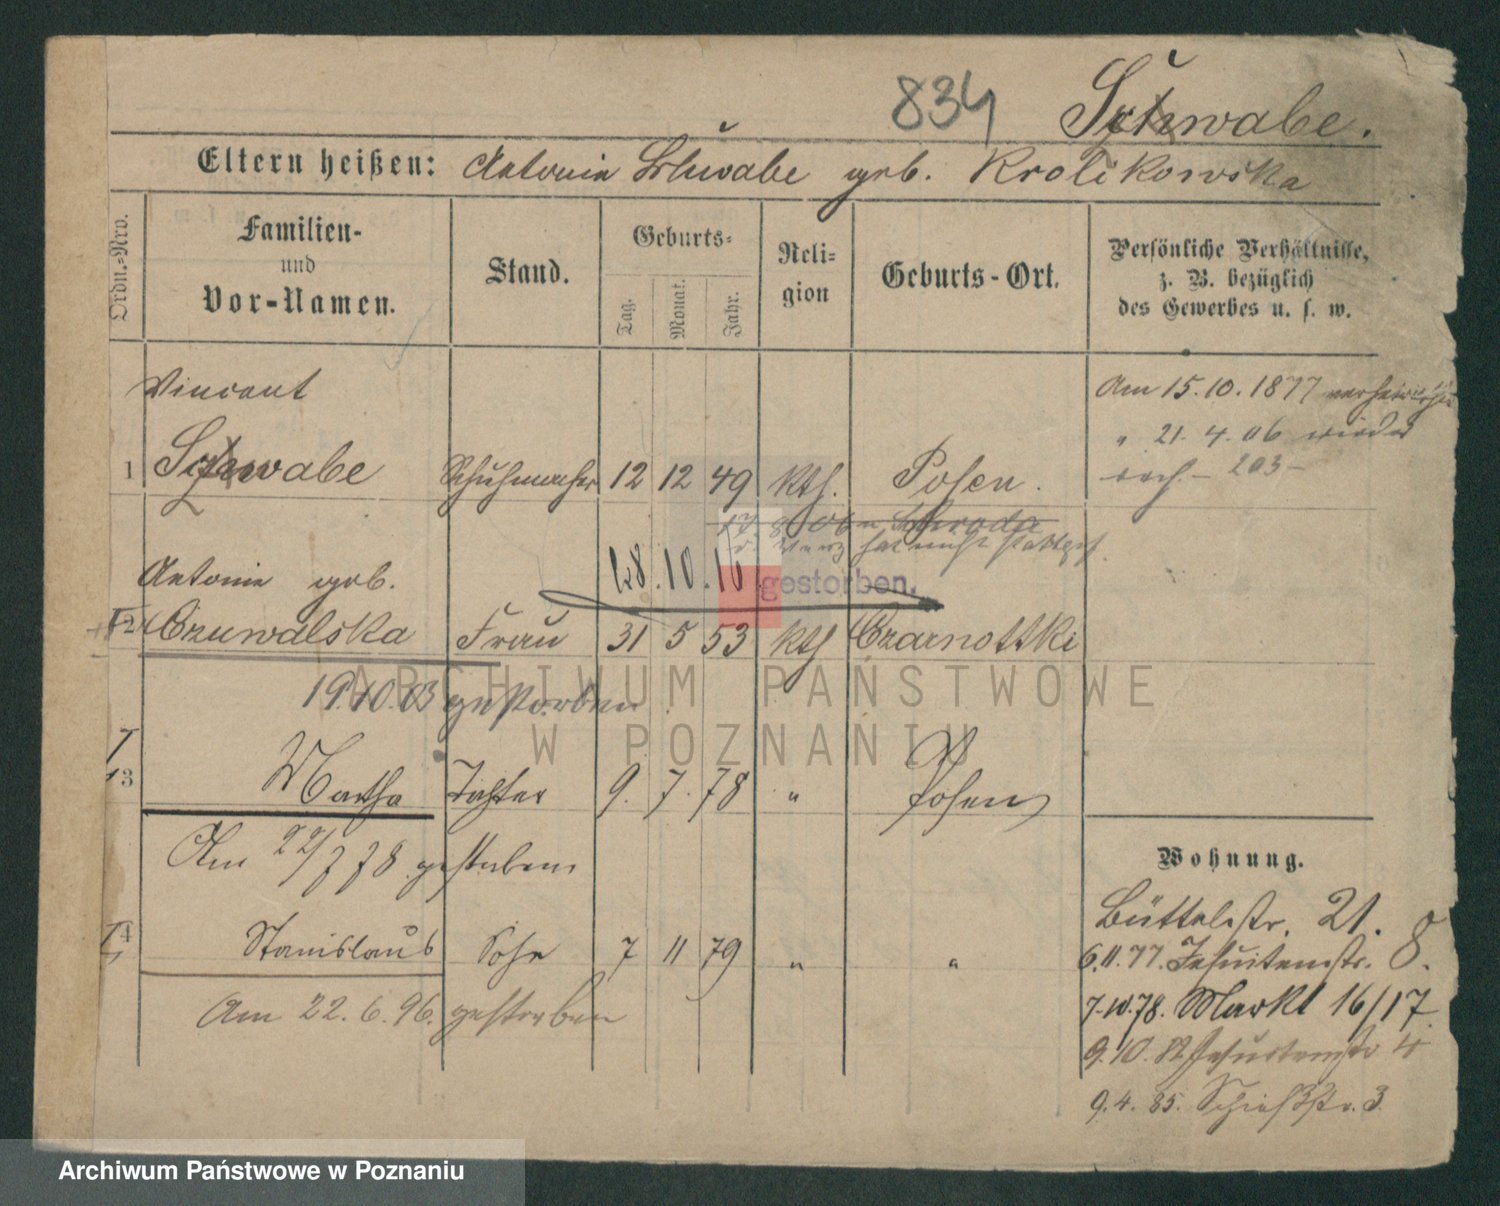 834 Schwabe.
Eltern heißen: Antonin Schwabe geb. Krolikowska
Ordn.-Nro.
Familien-
und
Vor-Namen.
Stand.
Geburts-
Tag.
Monat.
Jahr.
Reli-
gion
Geburts-Ort.
Persönliche Verhältnisse,
z. B. bezüglich
des Gewerbes u. s. w.
Vincent
1 Schwabe Schuhmacher 12 12 49 kth. Posen.
Am 15.10.1877 verheirathet
" 21.4.06 wieder
Schroda
hat nicht
28.10.16 gestorben.
Antonie geb.
2 Czuwalska Frau 31 5 53 kth Czarnotki
19.10.03 gestorben
3 Martha Tochter 9. 7. 78 " Posen
Am 22/7 78 gestorben
4 Stanislaus Sohn 7 11 79 " "
Am 22.6.96. gestorben
Wohnung.
Büttelstr. 21.
6.11.77. Jesuitenstr. 8.
7.10.78. Markt 16/17
9.10.82 Jesuitenstr 4
9.4.85. Schießstr. 3
ARCHIWUM PAŃSTWOWE
W POZNANIU
Archiwum Państwowe w Poznaniu